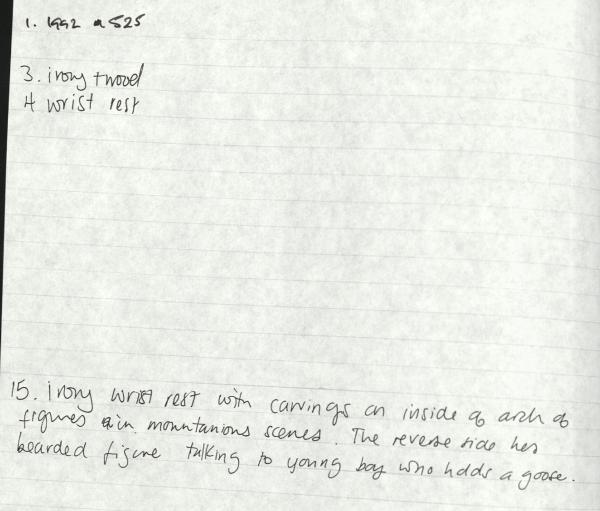 1. 1992 a 525
3. ivory + wood
4 wrist rest
15. ivory wrist rest with carvings on inside of arch of
figures in mountanious scenes. The reverse side has
bearded figure talking to young boy who holds a goose.